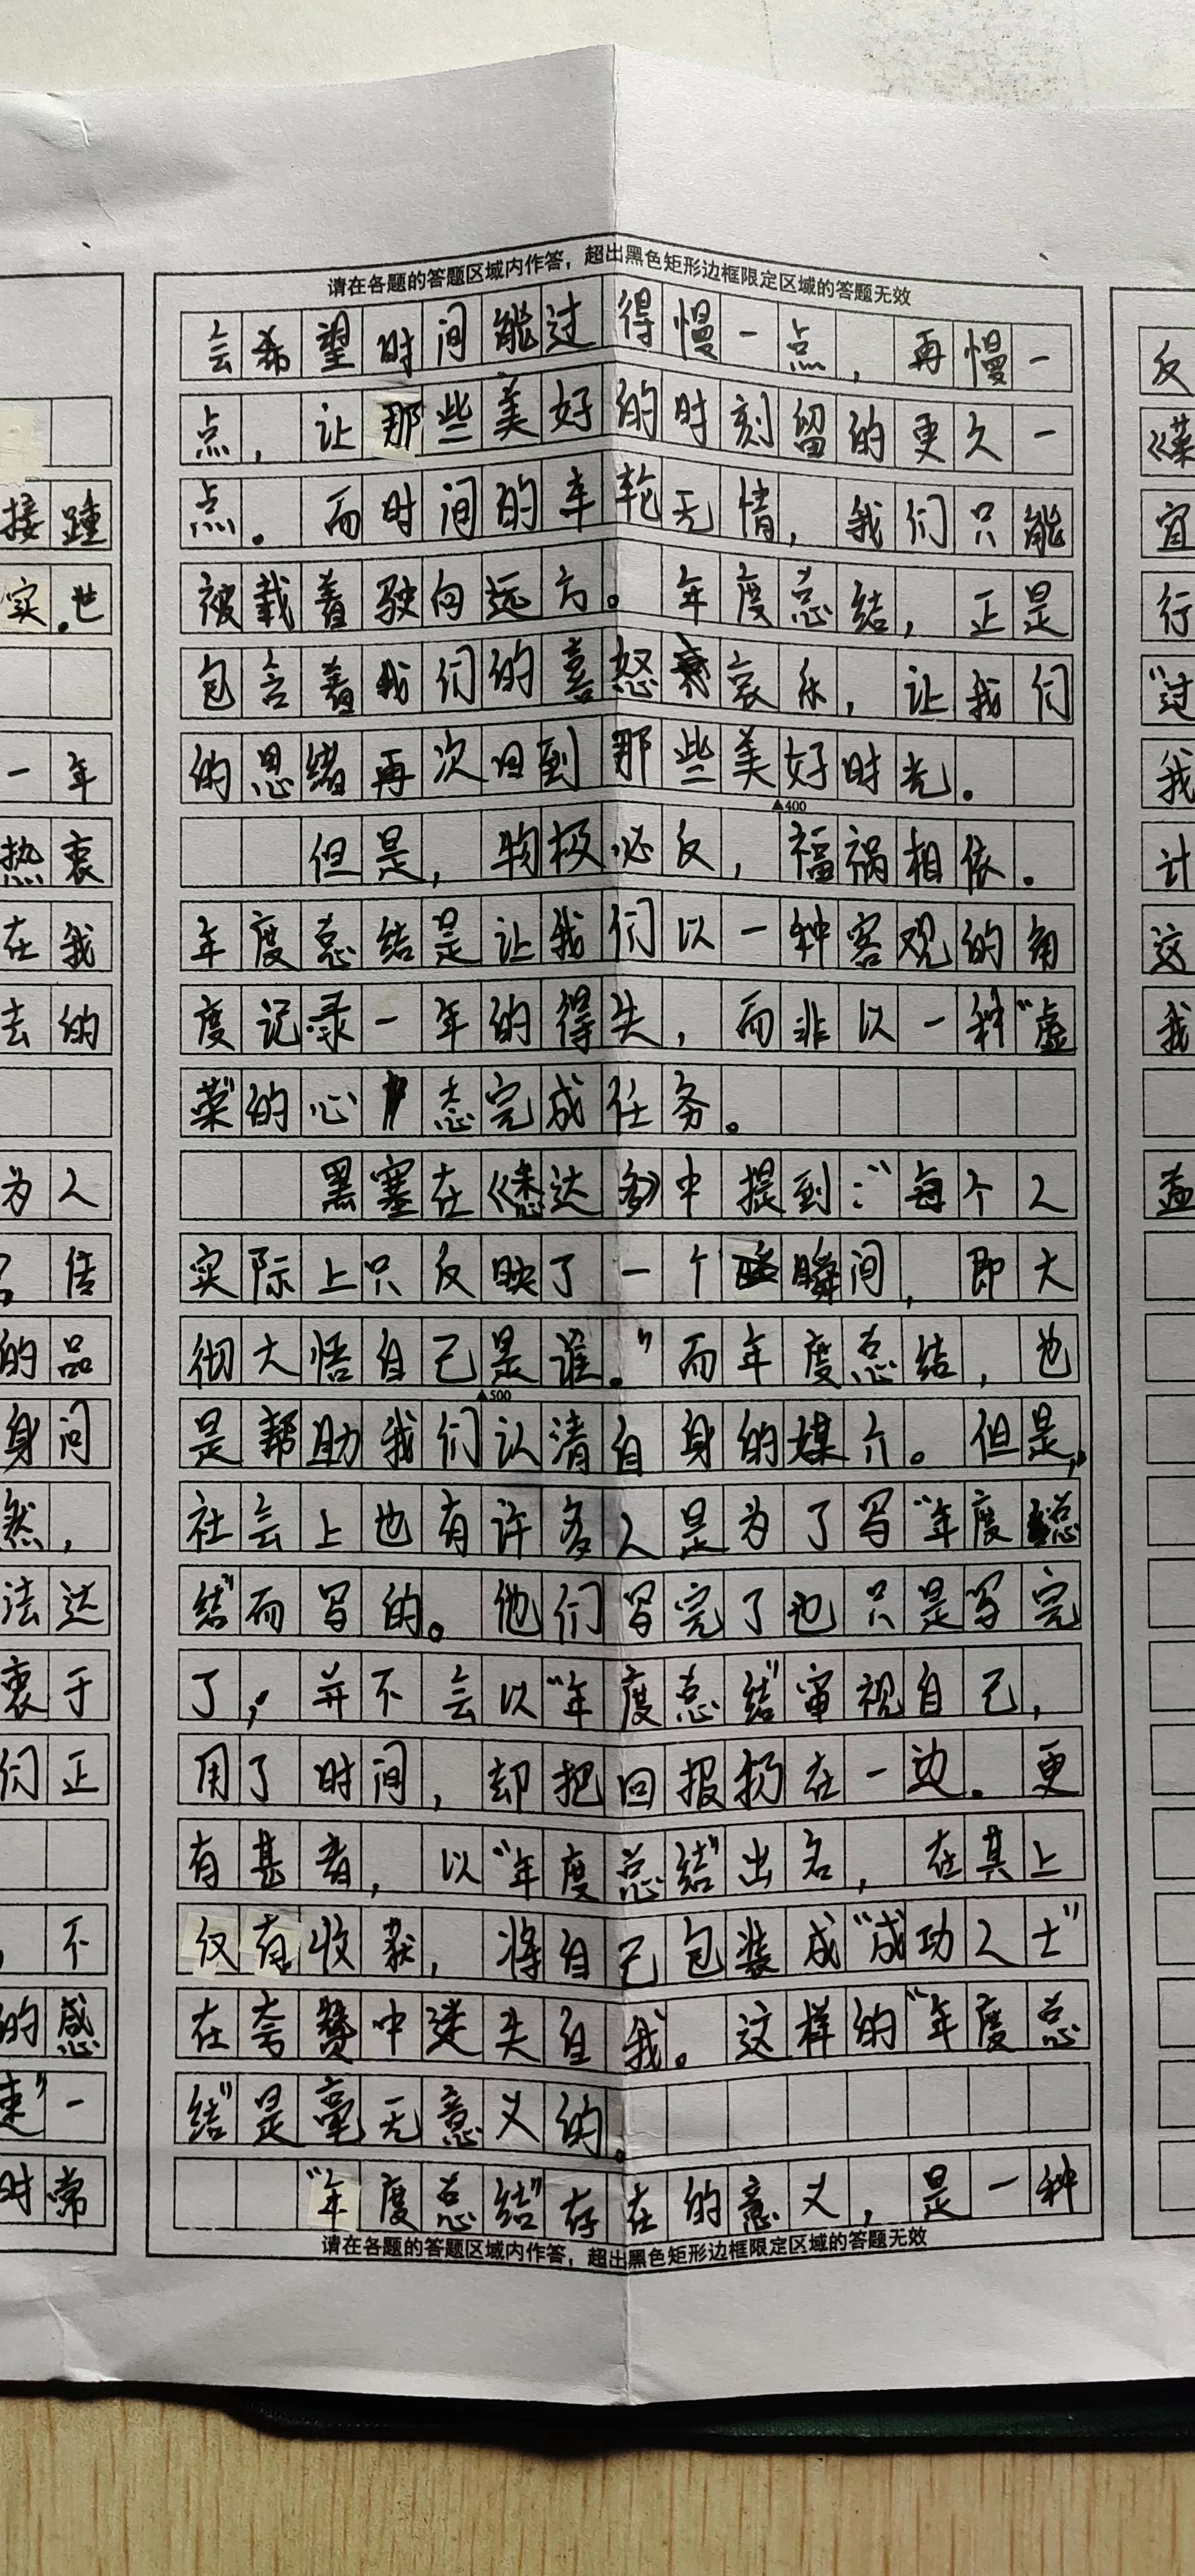 请在各题的答题区域内作答，超出黑色矩形边框限定区域的答题无效
会希望时间能过得慢一点，再慢一
点，让那些美好的时刻留的更久一
点。而时间的车轮无情，我们只能
被载着驶向远方。年度总结，正是
包含着我们的喜怒哀乐，让我们
的思绪再次回到那些美好时光。
▲400
但是，物极必反，福祸相依。
年度总结是让我们以一种客观的角
度记录一年的得失，而非以一种“虚
荣”的心态完成任务。
黑塞在《悉达多》中提到：“每个人
实际上只反映了一个瞬间，即大
彻大悟自己是谁。”而年度总结，也
▲500
是帮助我们认清自身的媒介。但是，
社会上也有许多人是为了写“年度总
结”而写的。他们写完了也只是写完
了，并不会以“年度总结”审视自己，
用了时间，却把回报扔在一边。更
有甚者，以“年度总结”出名，在其上
仅有收获，将自己包装成“成功人士”
在夸赞中迷失自我。这样的“年度总
结”是毫无意义的。
“年度总结”存在的意义，是一种
请在各题的答题区域内作答，超出黑色矩形边框限定区域的答题无效
接踵
实。世
一年
热衷
在我
去的
为人
信
的品
身问
然，
法达
衷于
们正
，不
的感
速”一
时常
反
《菜
宜
行
“过
我
计
这
我
益